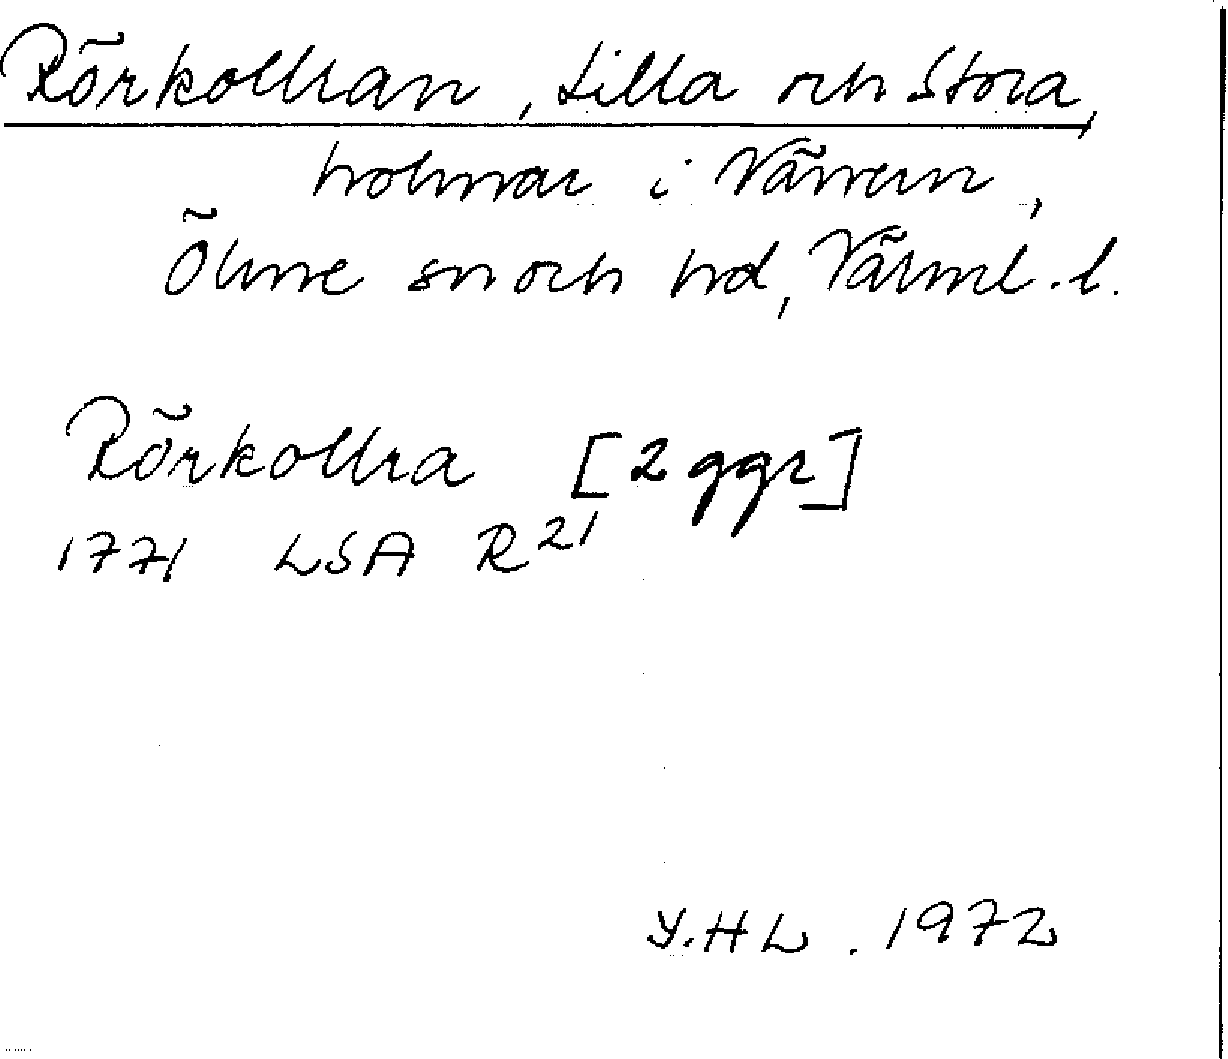 Rörkollran, Lilla och Stora,
holmar i Vänern,
Ölme sn och hd, Värml. l.
Rörkollra [2 ggr]
1771 LSA R21
Y.HL. 1972